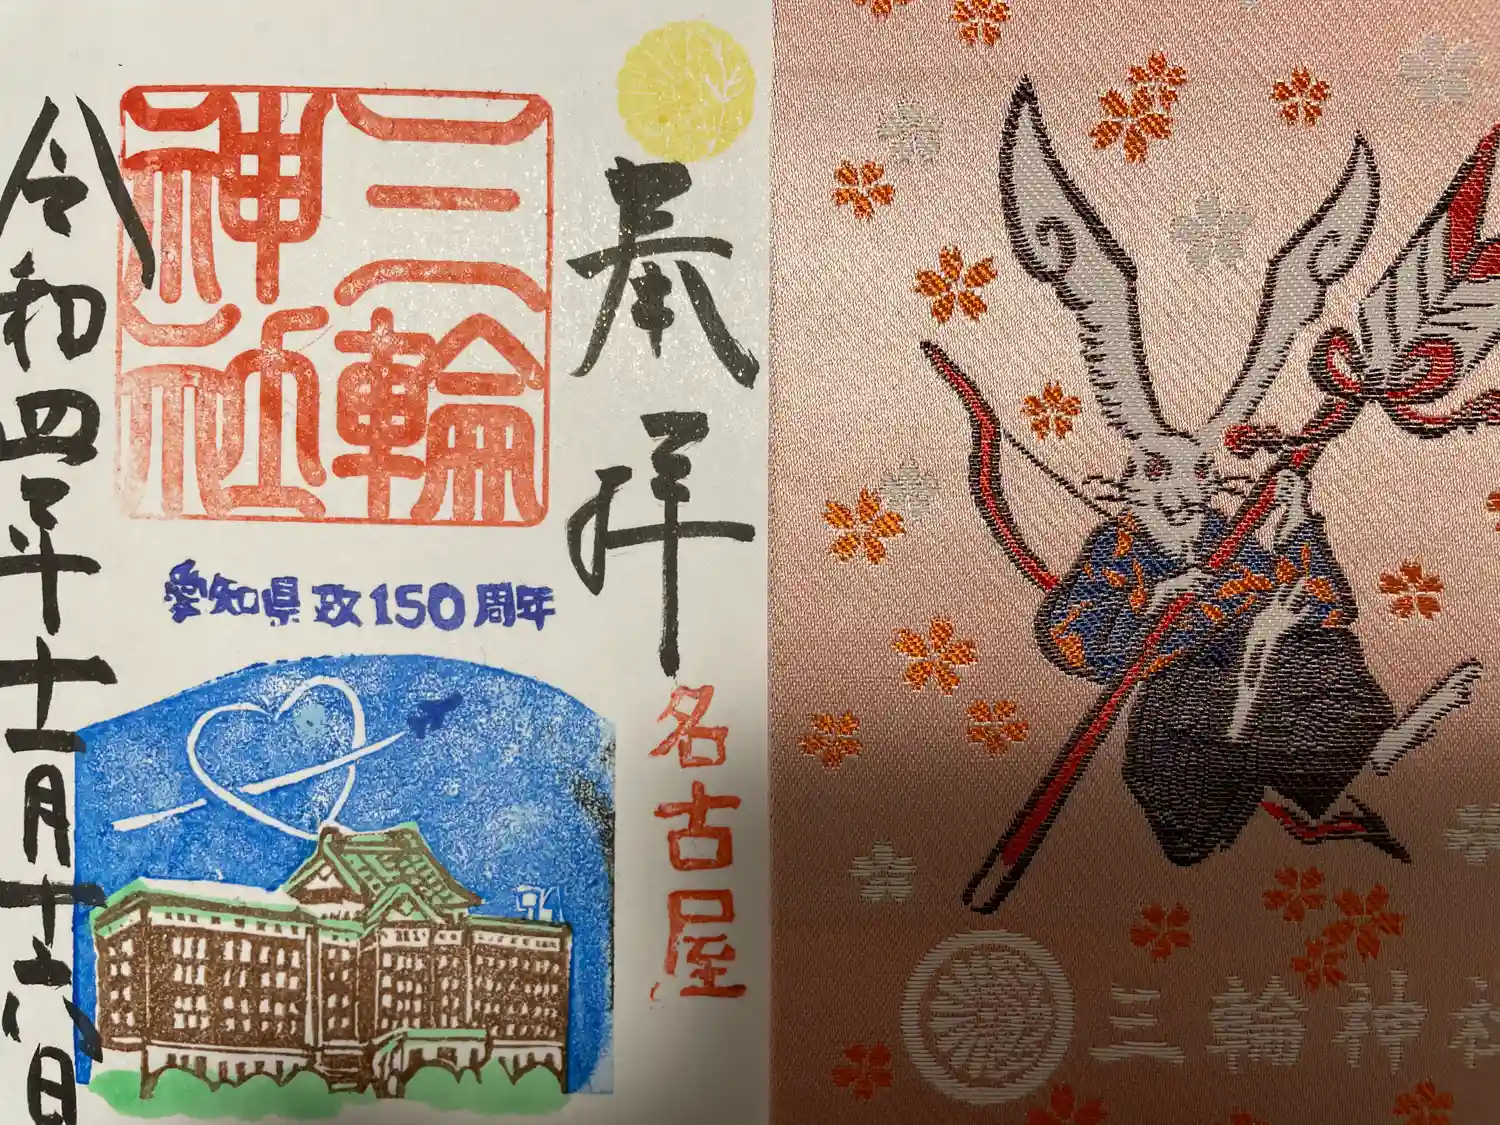 奉拝
名古屋
三輪
神社
愛知県政150周年
令和四年十一月十六日
三輪神社